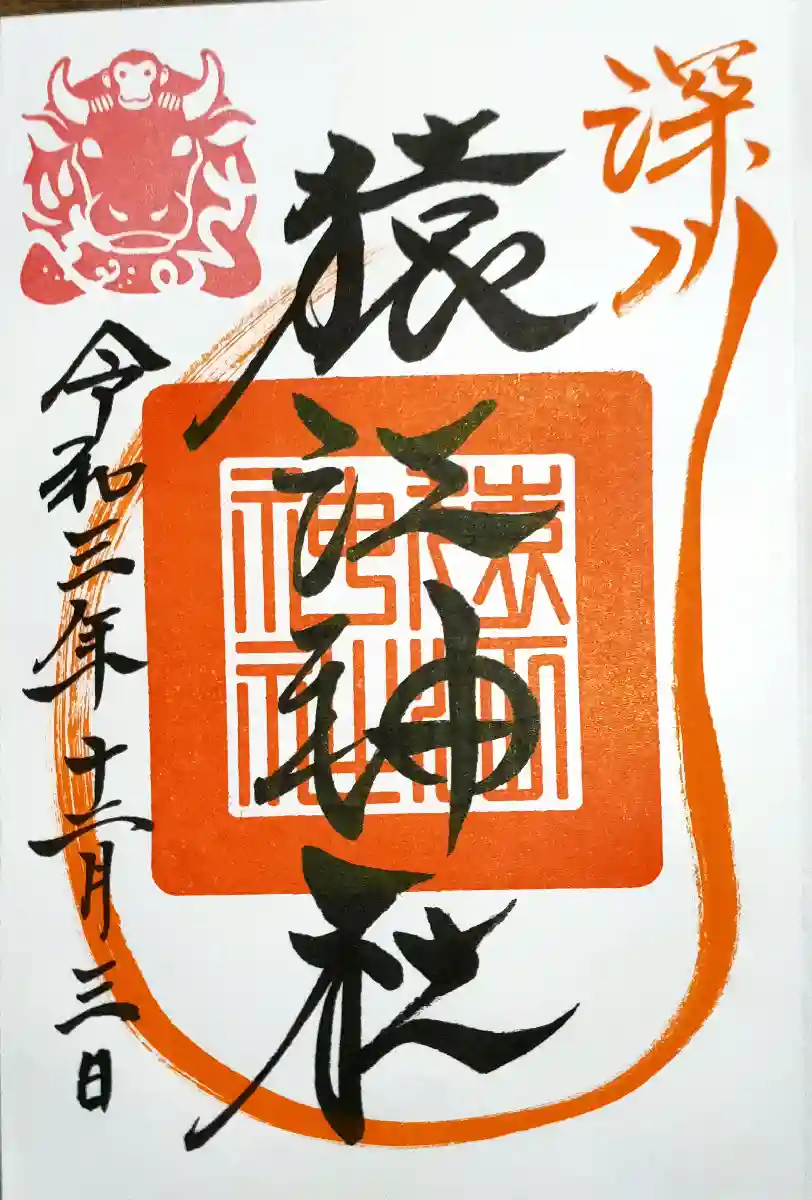 深川
猿江神社
猿江
神社
令和三年十二月三日